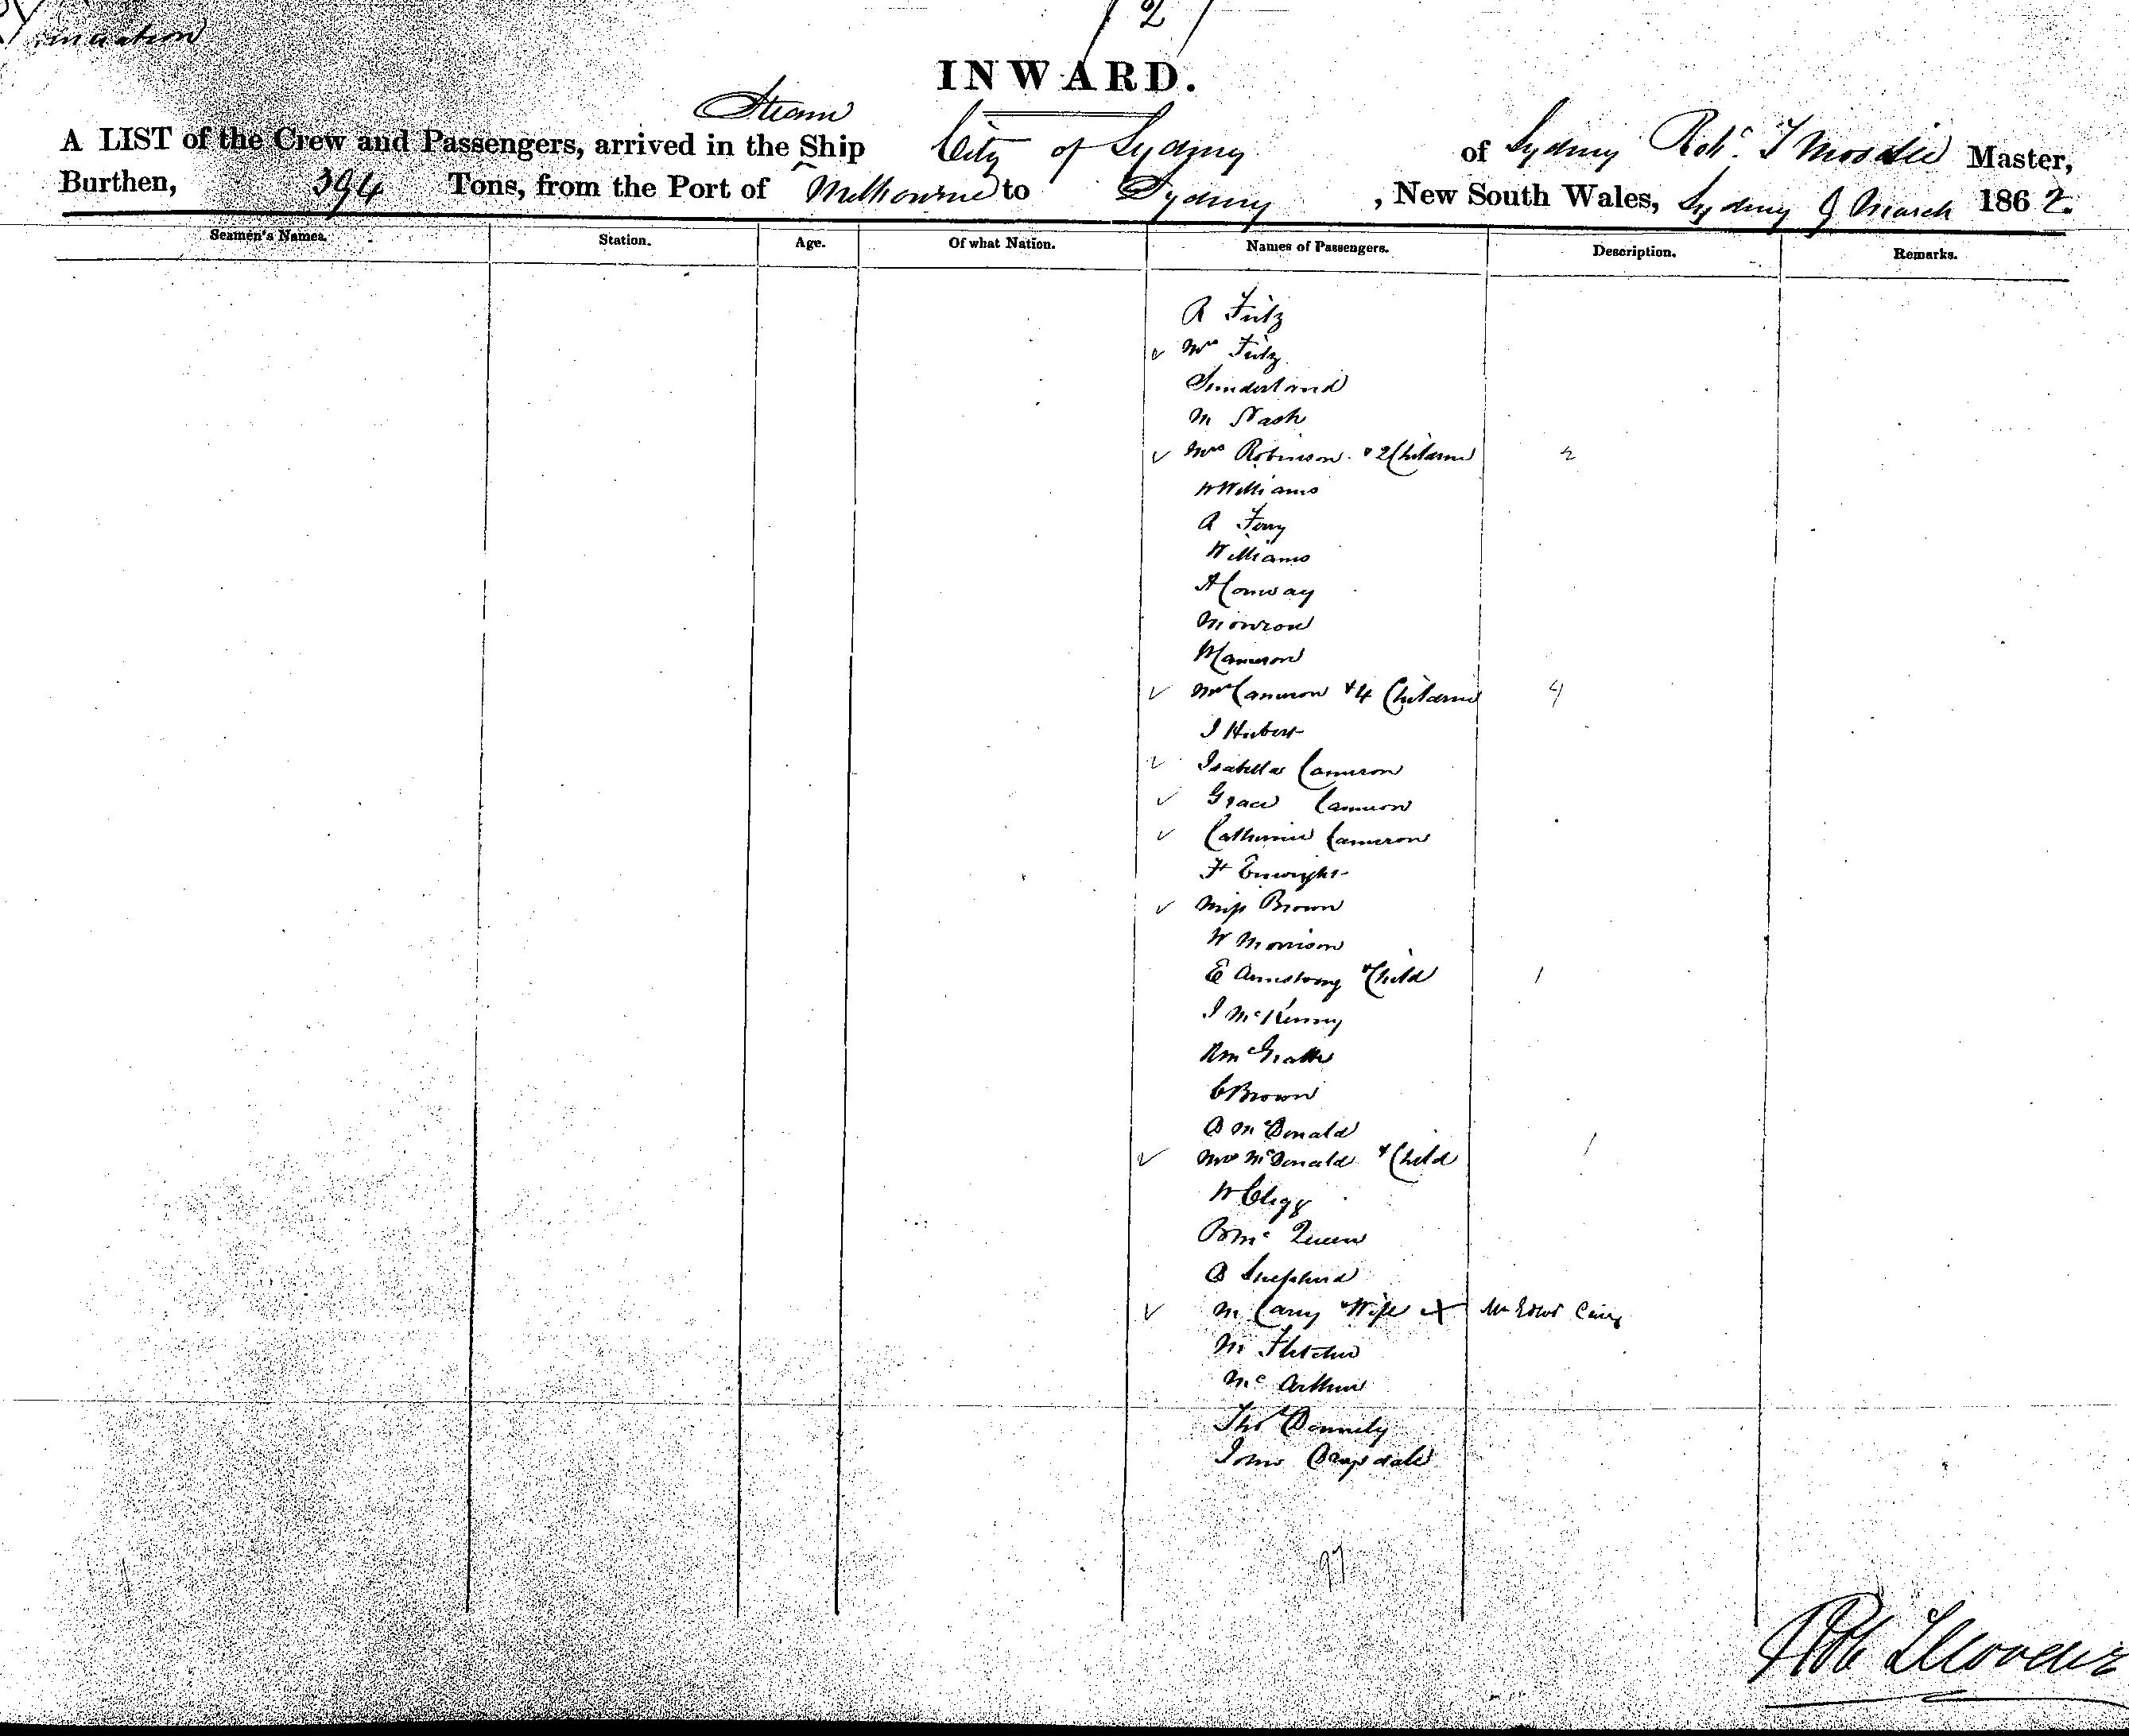 2
INWARD.
Steam
A LIST of the Crew and Passengers, arrived in the Ship City of Sydney of Sydney Robt. T Moodie Master,
Burthen, 394 Tons, from the Port of Melbourne to Sydney, New South Wales, Sydney 9 March 1862.
Seamen's Names. Station. Age. Of what Nation. Names of Passengers. Description. Remarks.
R Fitz
Mrs Fitz
Sunderland
M Nash
Mrs Robinson & 2 Children 2
W Williams
A Ferry
Williams
A Conway
Monroe
Cameron
Mrs Cameron & 4 Children 4
J Hubert
Isabella Cameron
Grace Cameron
Catherine Cameron
F Enwright
Miss Brown
W Morrison
E Armstrong & Child 1
J McKenny
McGrath
C Brown
D McDonald
Mrs McDonald & Child 1
W Clegg
McQueen
D Shepherd
M Carry & Wife Mr Edwd
M Fletcher
McArthur
Thos Donnely
97